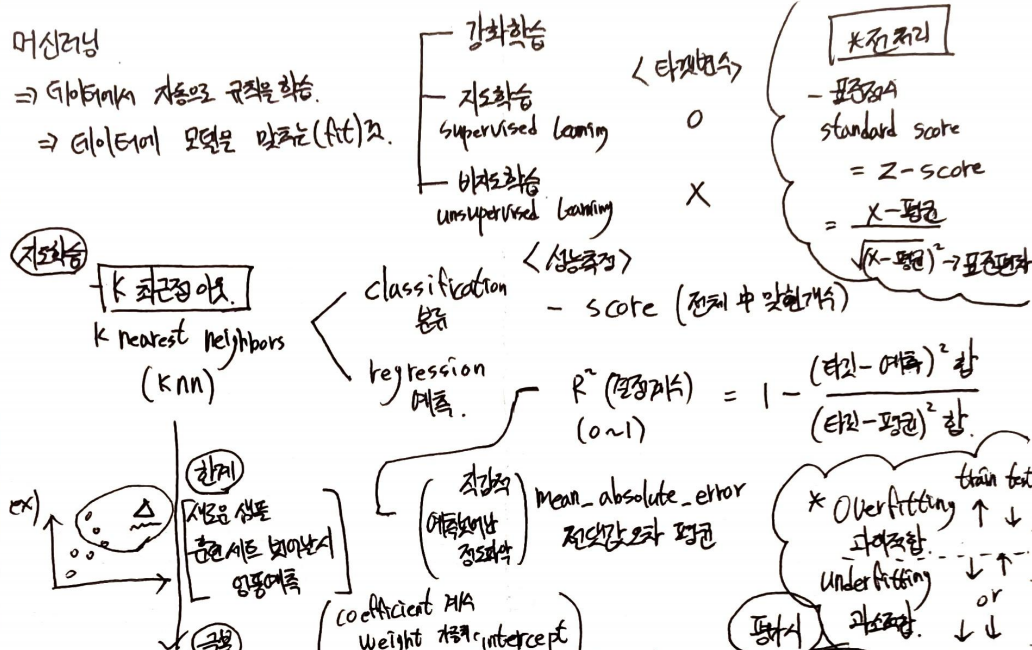 머신러닝
⇒ 데이터에서 자동으로 규칙을 학습.
⇒ 데이터에 모델을 맞추는(fit)것.
강화학습
지도학습
supervised learning
비지도학습
unsupervised learning
<타겟변수>
O
X
*전처리
- 표준점수
standard score
= Z-score
= X-평균
√(X-평균)² → 표준편차
지도학습
K 최근접 이웃.
K nearest neighbors
(Knn)
classification
분류
regression
예측.
<성능측정>
- score (전체 中 맞힌개수)
R² (결정계수) = 1 - (타깃-예측)² 합
(타깃-평균)² 합.
(0~1)
직감적
예측벗어난
정도파악
mean_absolute_error
절댓값오차 평균
ex)
한계
새로운 샘플
훈련세트 벗어난시
엉뚱예측
극복
coefficient 계수
weight 가중치, intercept
train test
* Overfitting ↑ ↓
과대적합.
underfitting ↓ ↑
or
과소적합. ↓ ↓
평가시